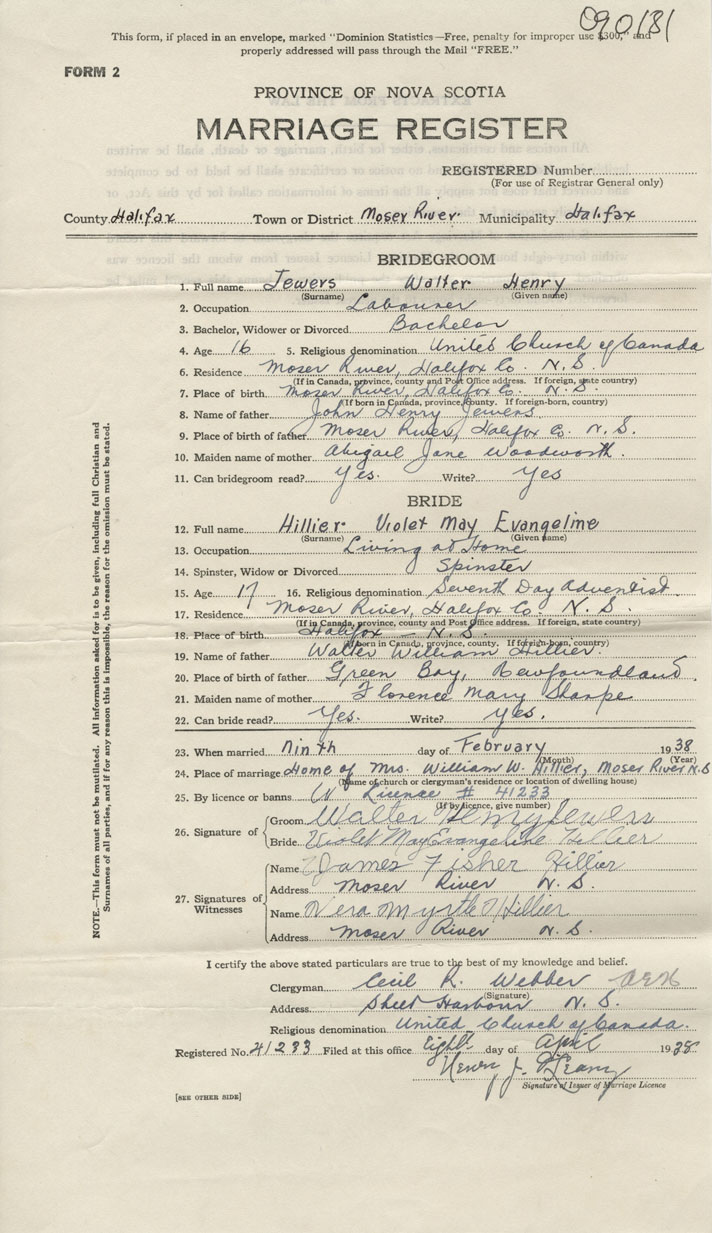 090131
This form, if placed in an envelope, marked "Dominion Statistics—Free, penalty for improper use $300," and
properly addressed will pass through the Mail "FREE."
FORM 2
PROVINCE OF NOVA SCOTIA
MARRIAGE REGISTER
REGISTERED Number
(For use of Registrar General only)
County Halifax Town or District Moser River. Municipality Halifax
BRIDEGROOM
1. Full name Jewers Walter Henry
(Surname) (Given name)
2. Occupation Labourer
3. Bachelor, Widower or Divorced Bachelor
4. Age 16 5. Religious denomination United Church of Canada
6. Residence Moser River, Halifax Co. N.S.
(If in Canada, province, county and Post Office address. If foreign, state country)
7. Place of birth Moser River, Halifax Co. N.S.
(If born in Canada, province, county. If foreign-born, country)
8. Name of father John Henry Jewers
9. Place of birth of father Moser River, Halifax Co. N.S.
10. Maiden name of mother Abigail Jane Woodworth.
11. Can bridegroom read? Yes. Write? Yes
BRIDE
12. Full name Hillier Violet May Evangeline
(Surname) (Given name)
13. Occupation Living at Home
14. Spinster, Widow or Divorced Spinster
15. Age 17 16. Religious denomination Seventh Day Adventist.
17. Residence Moser River, Halifax Co. N.S.
(If in Canada, province, county and Post Office address. If foreign, state country)
18. Place of birth Halifax - N.S.
(If born in Canada, province, county. If foreign-born, country)
19. Name of father Walter William Hillier.
20. Place of birth of father Green Bay, Newfoundland.
21. Maiden name of mother Florence Mary Sharpe
22. Can bride read? Yes. Write? Yes.
23. When married Ninth day of February 1938
(Month) (Year)
24. Place of marriage Home of Mrs. William W. Hillier, Moser River N.S
(Name of church or clergyman's residence or location of dwelling house)
25. By licence or banns Licence # 41233
(If by licence, give number)
26. Signature of
Groom Walter Henry Jewers
Bride Violet May Evangeline Hillier
27. Signatures of Witnesses
Name James Fisher Hillier
Address Moser River N.S.
Name Vera Myrtle Hillier
Address Moser River N.S.
I certify the above stated particulars are true to the best of my knowledge and belief.
Clergyman Cecil R. Webber
(Signature)
Address Sheet Harbour N.S.
Religious denomination United Church of Canada.
Registered No. 41233 Filed at this office Eight day of April 1938
Henry J.
Signature of Issuer of Marriage Licence
[SEE OTHER SIDE]
NOTE.—This form must not be mutilated. All information asked for is to be given, including full Christian and
Surnames of all parties, and if for any reason this is impossible, the reason for the omission must be stated.